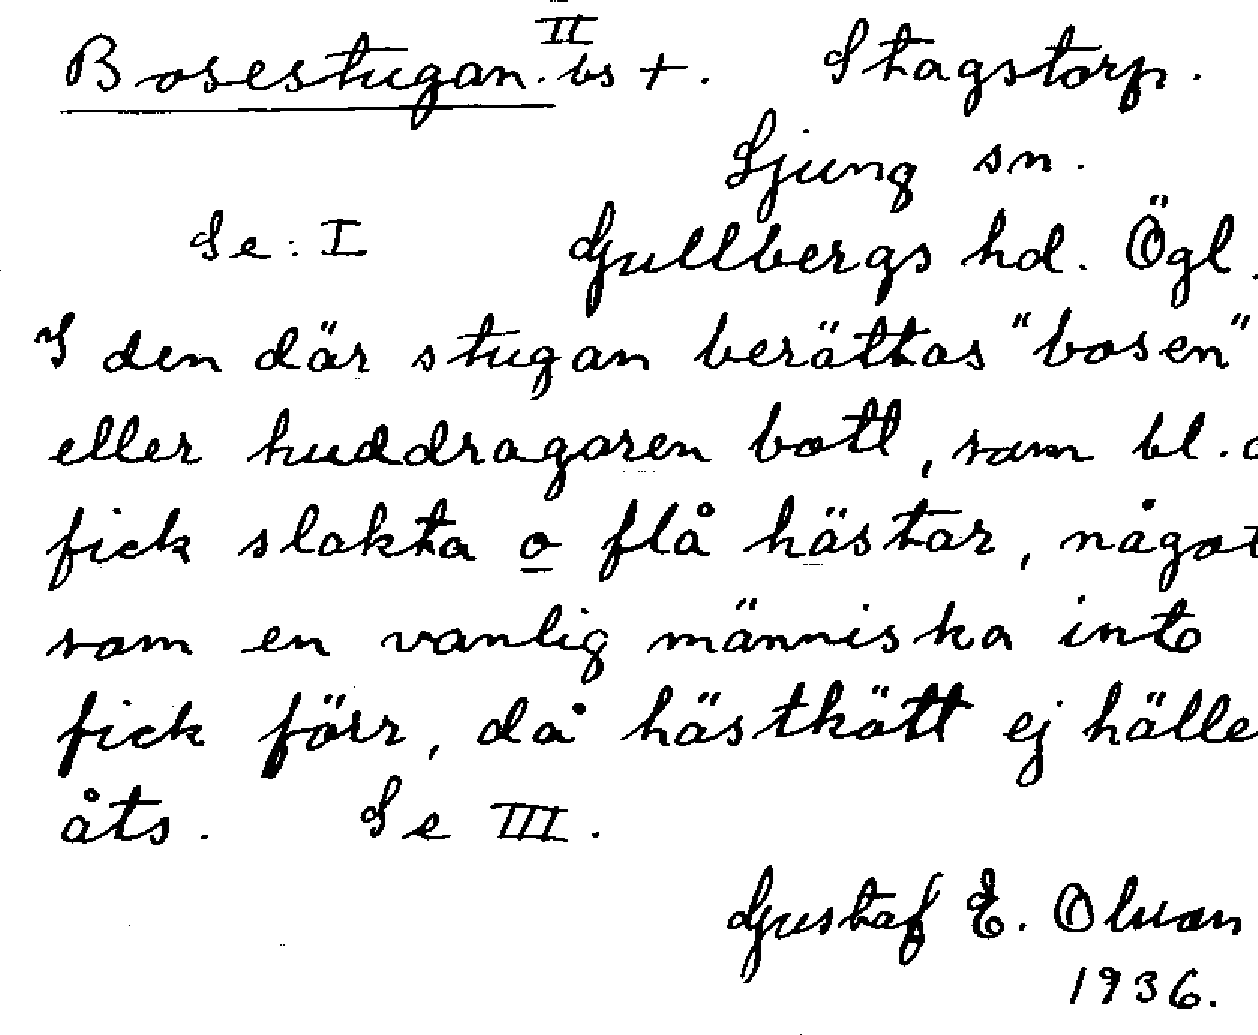 Bosestugan. II bs +. Stagstorp.
Ljung sn.
Se: I Gullbergs hd. Ögl.
I den där stugan berättas "bosen"
eller huddragaren bott, som bl. a
fick slakta o flå hästar, något
som en vanlig människa inte
fick förr, då hästkött ej hälle
åts. Se III.
Gustaf E. Olson
1936.